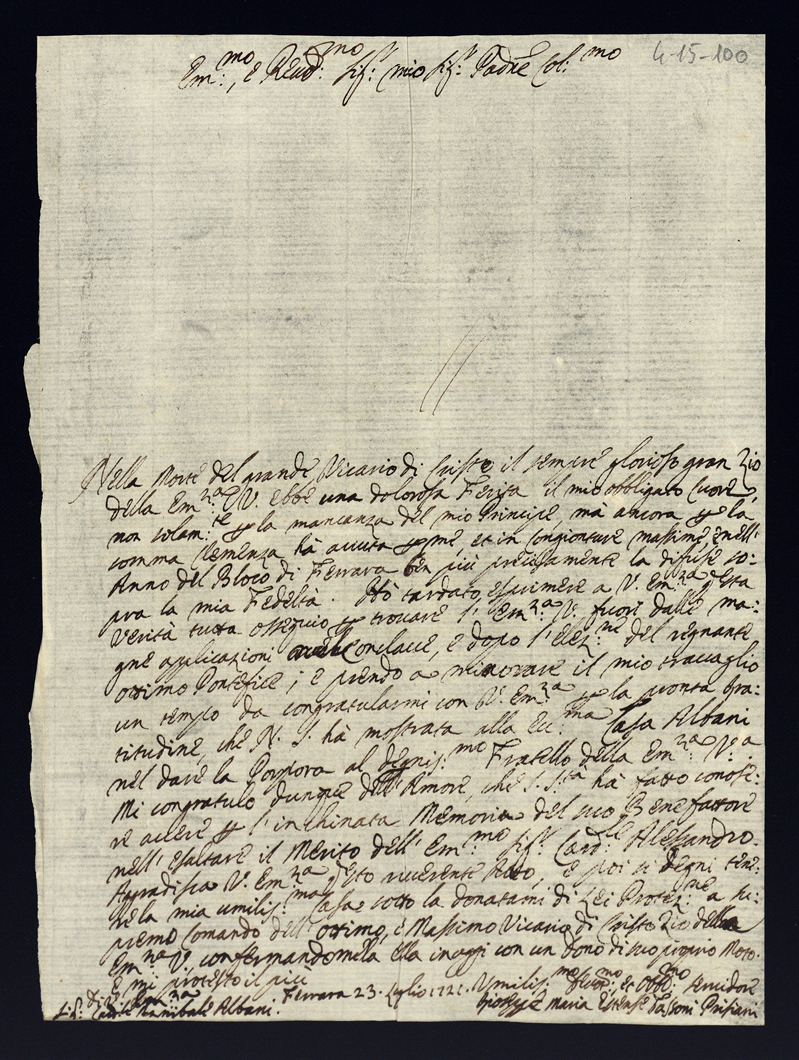 4-15-100
Em:mo, e Reud:mo Sig:r mio Sig:r Padrē Col:mo
Nella Morte del grande Vicario di Cristo il sempre glorioso gran Zio
della Em:za V. ebbe una dolorosa Ferita il mio obbligato Cuore,
non solam:te p la mancanza del mio Principe, mà ancora p la
somma Clemenza hà avuta p me, et in congionture massime nell'
Anno del Bloco di Ferrara ben più precisamente la difuse so:
pra la mia Fedeltà. Hò tardato esprimere a V. Em:za q̄sta
verità tutta ossequio p trovare l'Em:za V. fuori dalle ma:
gne applicazioni Conclave, e dopo l'elez:ne del regnante
ottimo Pontefice; e prendo a minorare il mio travaglio
un tempo da congratularmi con V. Em:za p la pronta gra:
titudine, che N. S. hà mostrata alla Ecc:ma Casa Albani
nel dare la Porpora al degnis:mo Fratello della Em:za V:a
Mi congratulo dunque dell'Amore, che S. S:tà hà fatto conosc:
re avere p l'inchinata Memoria del suo Benefattore
nell'esaltare il Merito dell'Em:mo Sig:r Card:le Alessandro.
Aggradisca V. Em:za q̄sto riverente Atto, e poi si degni tene:
re la mia umilis:ma Casa sotto la donatami di Lei Protez:ne a su:
premo Comando dell'ottimo, e Massimo Vicario di Cristo Zio della
Em:za V. confermandomela Ella in oggi con un dono di suo proprio Moto.
E mi protesto il più
di V. Em:za
Ferrara 23. Luglio 1721.
Umilis:mo Devot:mo, et Obblig:mo Servidore
Sig:r Card:le Annibale Albani.
Maria Estense Tassoni Prisiani